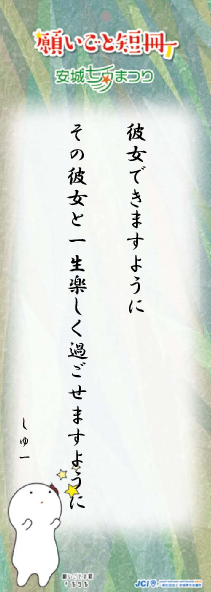 願いごと短冊
安城七夕まつり
彼女できますように
その彼女と一生楽しく過ごせますように
しゅー
JCI